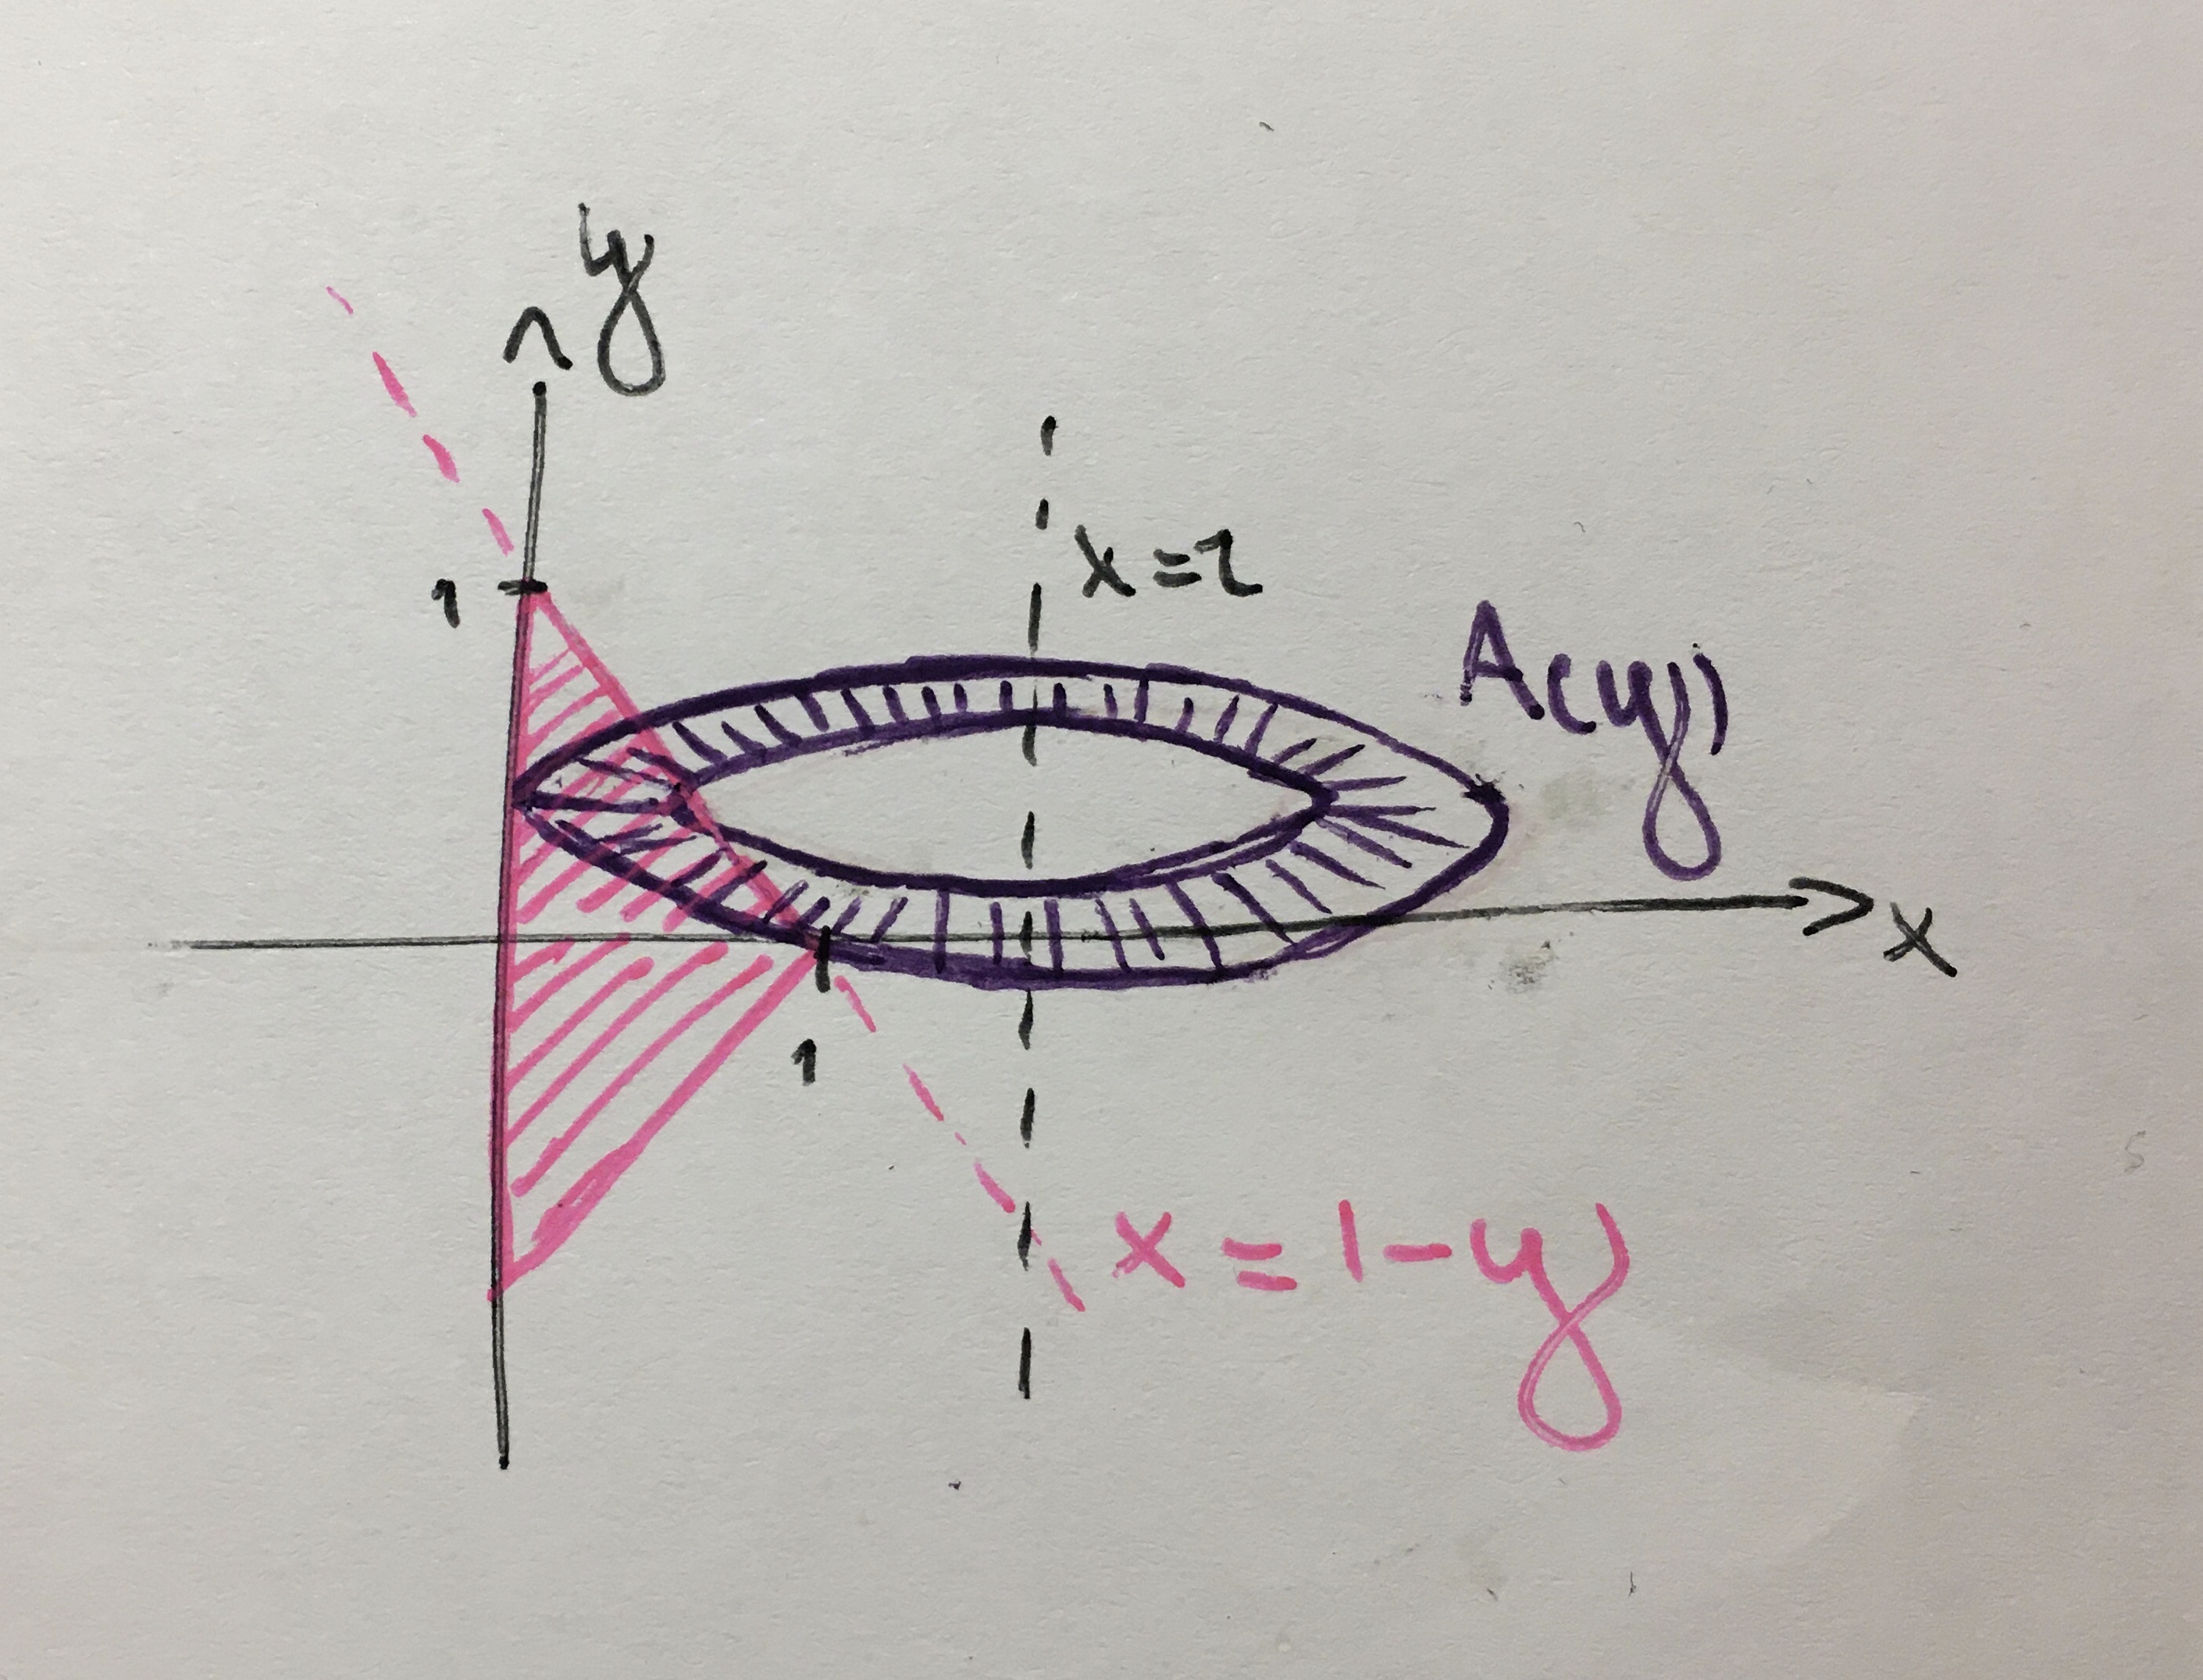 y
1
x=2
A(y)
x
1
x = 1-y